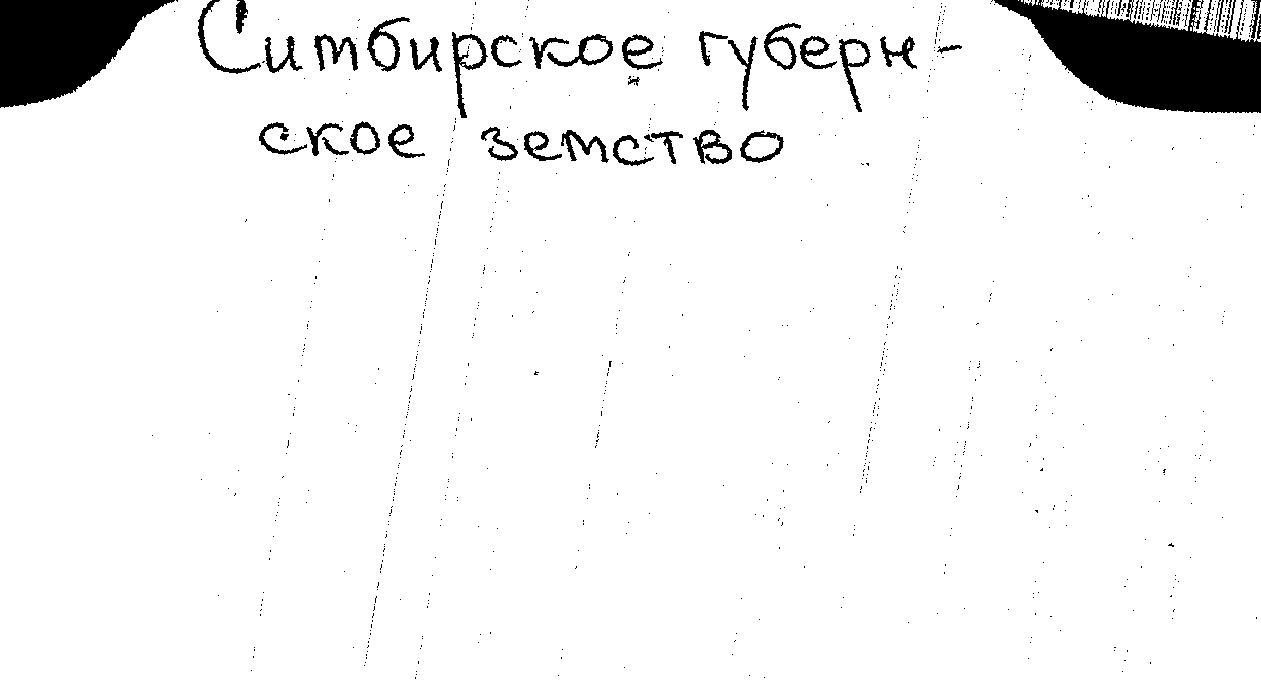 Симбирское губерн-
ское земство